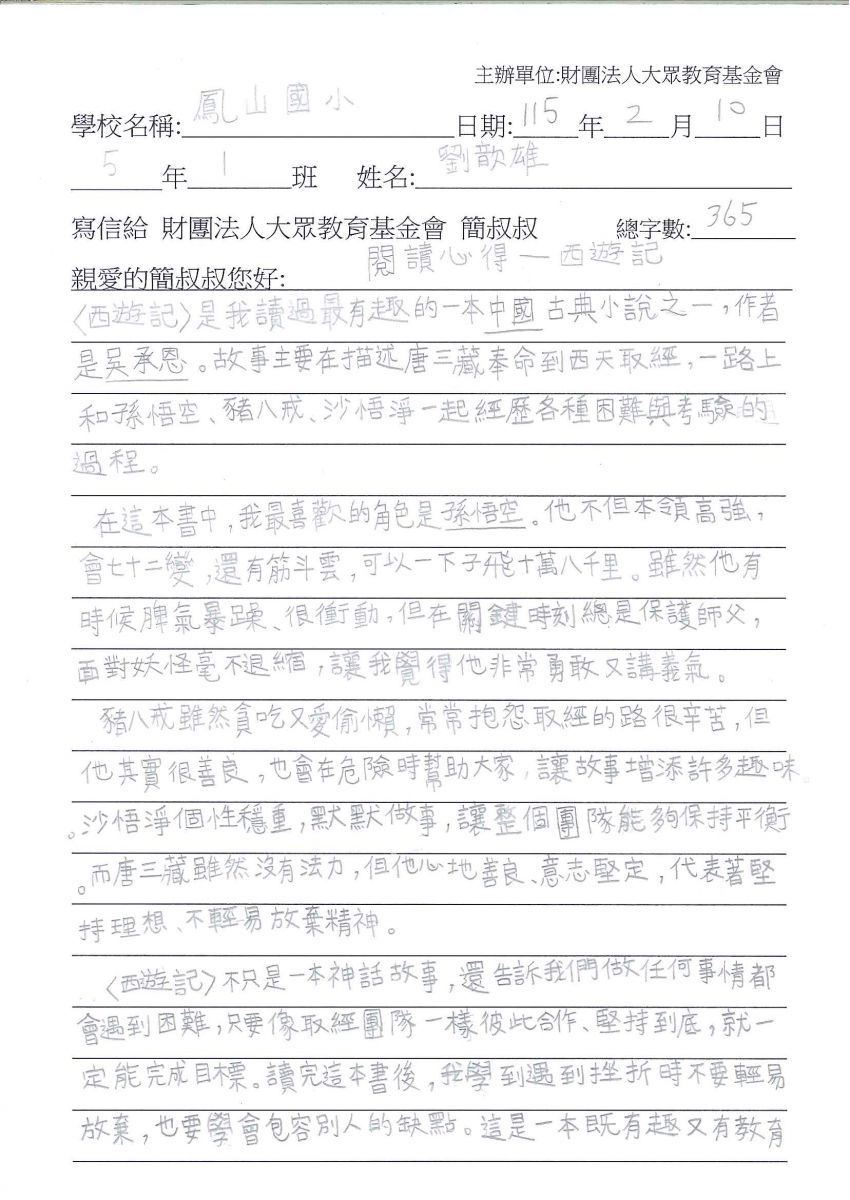 主辦單位:財團法人大眾教育基金會
學校名稱:鳳山國小 日期:115年2月10日
5年1班 姓名:劉歆雄
寫信給 財團法人大眾教育基金會 簡叔叔 總字數:365
親愛的簡叔叔您好: 閱讀心得—西遊記
〈西遊記〉是我讀過最有趣的一本中國古典小說之一,作者
是吳承恩。故事主要在描述唐三藏奉命到西天取經,一路上
和孫悟空、豬八戒、沙悟淨一起經歷各種困難與考驗的
過程。
在這本書中,我最喜歡的角色是孫悟空。他不但本領高強,
會七十二變,還有筋斗雲,可以一下子飛十萬八千里。雖然他有
時候脾氣暴躁、很衝動,但在關鍵時刻總是保護師父,
面對妖怪毫不退縮,讓我覺得他非常勇敢又講義氣。
豬八戒雖然貪吃又愛偷懶,常常抱怨取經的路很辛苦,但
他其實很善良,也會在危險時幫助大家,讓故事增添許多趣味
。沙悟淨個性穩重,默默做事,讓整個團隊能夠保持平衡
。而唐三藏雖然沒有法力,但他心地善良、意志堅定,代表著堅
持理想、不輕易放棄精神。
〈西遊記〉不只是一本神話故事,還告訴我們做任何事情都
會遇到困難,只要像取經團隊一樣彼此合作、堅持到底,就一
定能完成目標。讀完這本書後,我學到遇到挫折時不要輕易
放棄,也要學會包容別人的缺點。這是一本既有趣又有教育